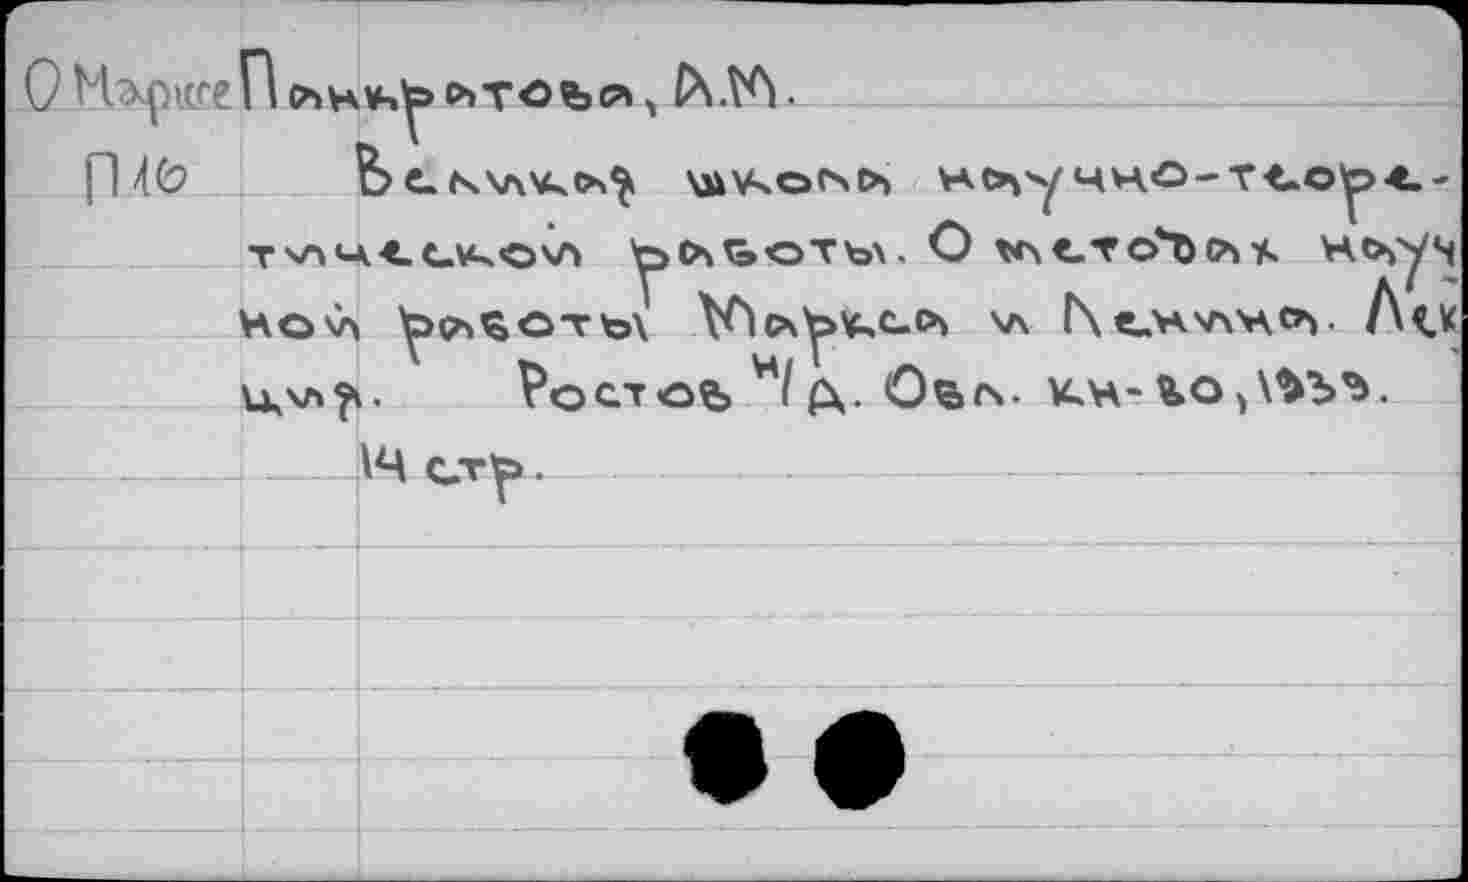 О Марксе Панкратова, А.М.
П16 Великая школа научно-теоре-
тической работы. О методах науч
ной работы Маркса и Ленина. Лек
ция. Ростов н/Д. Обл. кн-во, 1933.
14 стр.